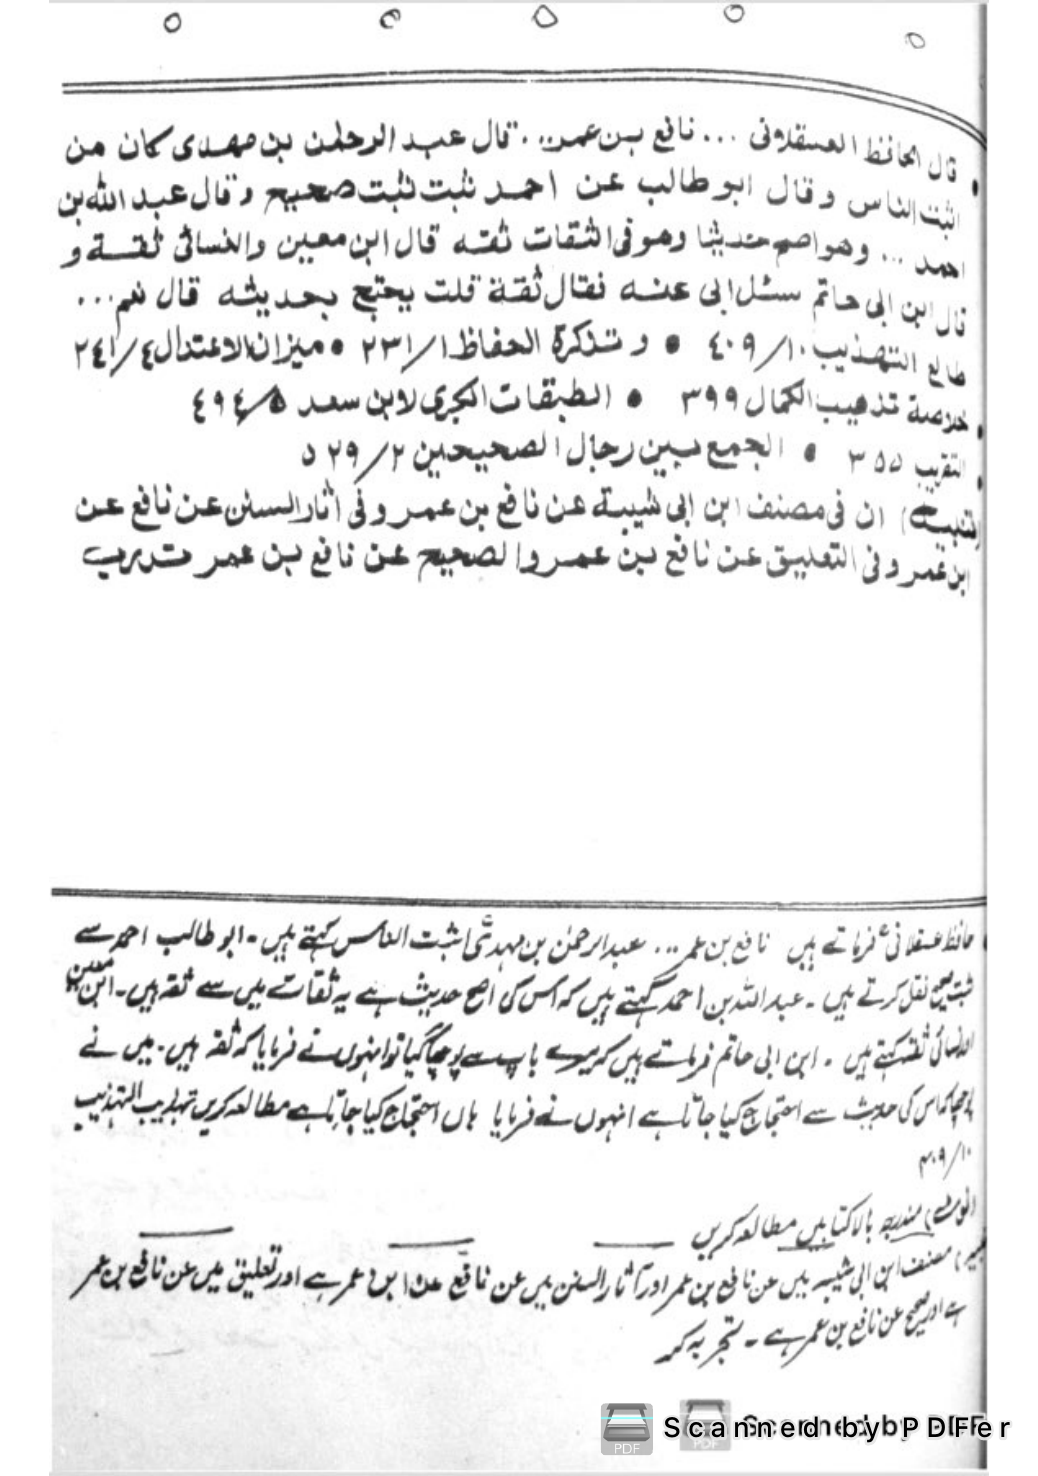 قال الحافظ العسقلانی ... نافع بن عمر... قال عبد الرحمٰن بن مهدی کان من
اثبت الناس وقال ابو طالب عن احمد ثبت ثبت صحیح وقال عبد الله بن
احمد ... وهو اصح حدیثا وهو فی الثقات ثقه قال ابن معین والنسائی ثقة و
قال ابن ابی حاتم سئل ابی عنه فقال ثقة قلت یحتج بحدیثه قال نعم...
طالع التهذیب ۱۰/۴۰۹ • و تذکرة الحفاظ ۱/۲۳۱ • میزان الاعتدال ۴/۲۴۱
• خلاصة تذهیب الکمال ۳۹۹ • الطبقات الکبری لابن سعد ۵/۴۹۴
• التقریب ۳۵۵ • الجمع بین رجال الصحیحین ۲/۵۲۹
(تنبیه) ان فی مصنف ابن ابی شیبة عن نافع بن عمر وفی اثار السنن عن نافع عن
ابن عمر وفی التعلیق عن نافع بن عمر والصحیح عن نافع بن عمر تدرب
حافظ عسقلانیؒ فرماتے ہیں نافع بن عمر... عبدالرحمٰن بن مہدیؒ اثبت الناس کہتے ہیں۔ ابو طالب احمد سے
ثبت صحیح نقل کرتے ہیں۔ عبد اللہ بن احمد کہتے ہیں کہ اس کی اصح حدیث ہے یہ ثقات میں سے ثقہ ہیں۔ ابن معین
اور نسائی ثقہ کہتے ہیں۔ ابن ابی حاتم فرماتے ہیں کہ میرے باپ سے پوچھا گیا تو انہوں نے فرمایا کہ ثقہ ہیں۔ میں نے
پوچھا کہ اس کی حدیث سے احتجاج کیا جاتا ہے انہوں نے فرمایا ہاں احتجاج کیا جاتا ہے مطالعہ کریں تہذیب التہذیب
۱۰/۴۰۹
(نوٹ) مندرجہ بالا کتابیں مطالعہ کریں
مصنف ابن ابی شیبہ میں عن نافع بن عمر اور آثار السنن میں عن نافع عن ابن عمر ہے اور تعلیق میں عن نافع بن عمر
ہے اور صحیح عن نافع بن عمر ہے۔ تجربہ کر
Scanned by PDFer